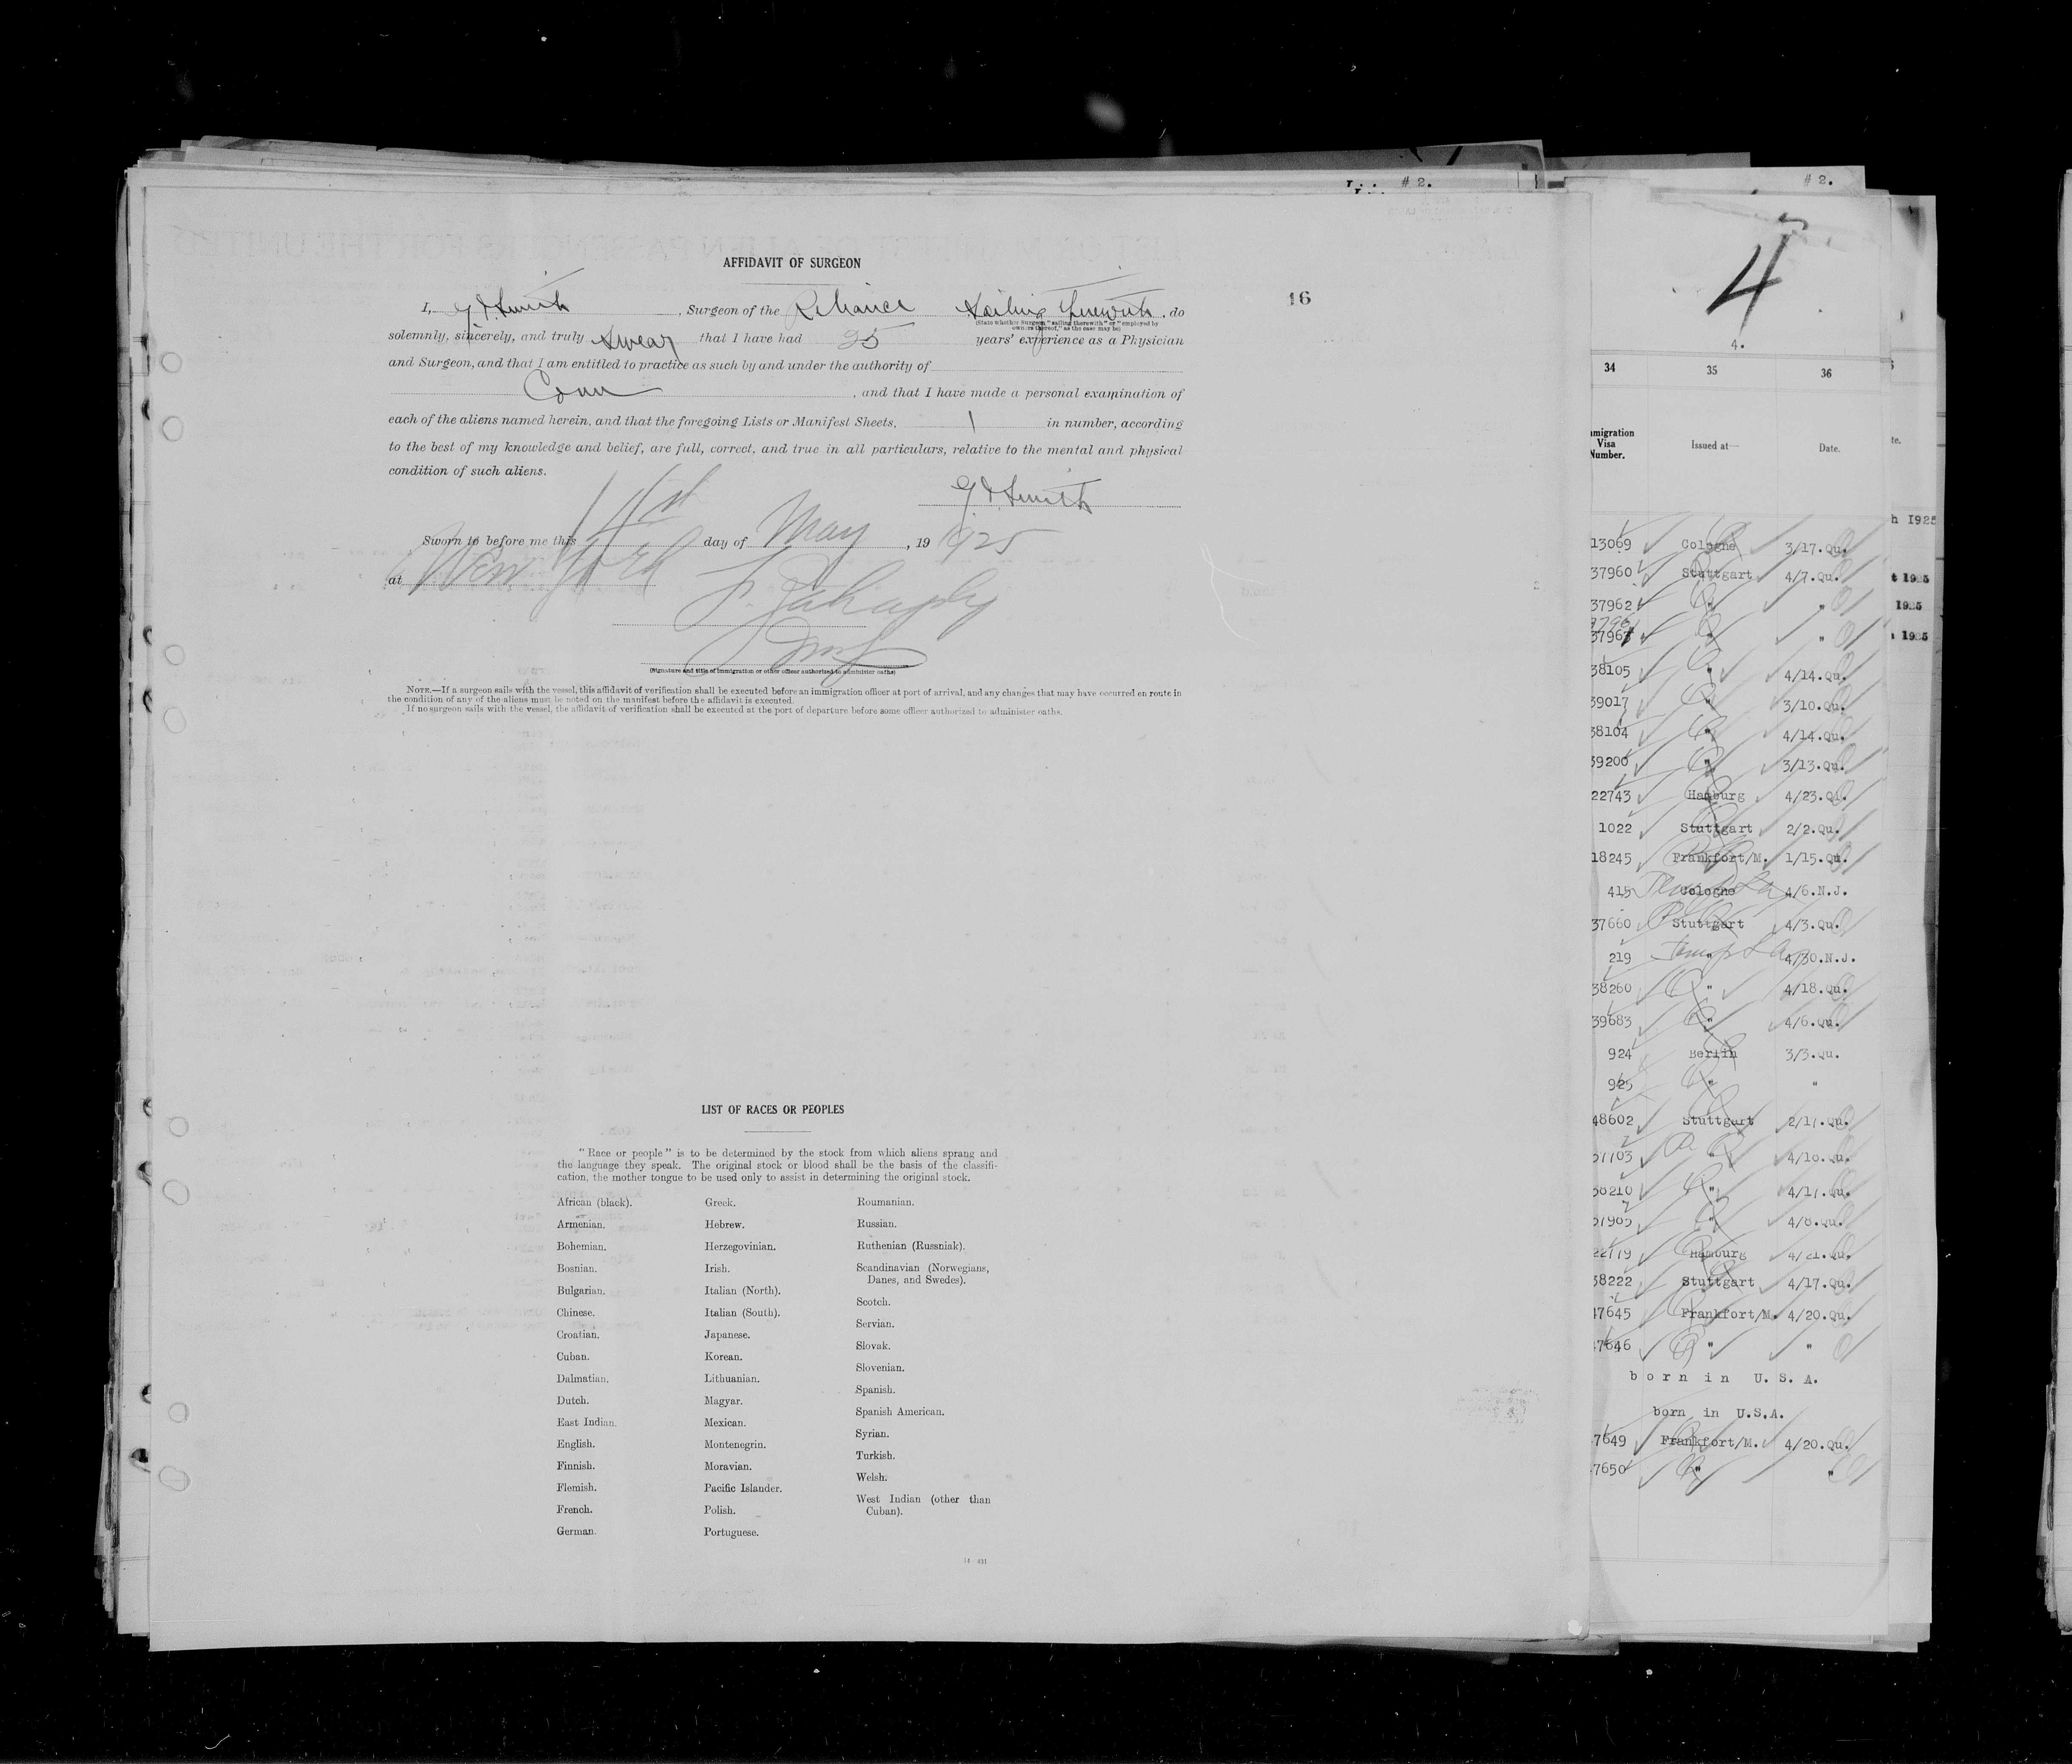 # 2.
# 2.
AFFIDAVIT OF SURGEON
16
I, G. D. Smith, Surgeon of the Reliance Sailing Therewith, do
(State whether Surgeon "sailing therewith" or "employed by
owners thereof," as the case may be)
solemnly, sincerely, and truly swear that I have had 25 years' experience as a Physician
and Surgeon, and that I am entitled to practice as such by and under the authority of
Conn, and that I have made a personal examination of
each of the aliens named herein, and that the foregoing Lists or Manifest Sheets, 1 in number, according
to the best of my knowledge and belief, are full, correct, and true in all particulars, relative to the mental and physical
condition of such aliens.
G. D. Smith
Sworn to before me this day of May, 19 1925
at New York
(Signature and title of immigration or other officer authorized to administer oaths)
NOTE.—If a surgeon sails with the vessel, this affidavit of verification shall be executed before an immigration officer at port of arrival, and any changes that may have occurred en route in
the condition of any of the aliens must be noted on the manifest before the affidavit is executed.
If no surgeon sails with the vessel, the affidavit of verification shall be executed at the port of departure before some officer authorized to administer oaths.
LIST OF RACES OR PEOPLES
"Race or people" is to be determined by the stock from which aliens sprang and
the language they speak. The original stock or blood shall be the basis of the classifi-
cation, the mother tongue to be used only to assist in determining the original stock.
African (black).
Armenian.
Bohemian.
Bosnian.
Bulgarian.
Chinese.
Croatian.
Cuban.
Dalmatian.
Dutch.
East Indian.
English.
Finnish.
Flemish.
French.
German.
Greek.
Hebrew.
Herzegovinian.
Irish.
Italian (North).
Italian (South).
Japanese.
Korean.
Lithuanian.
Magyar.
Mexican.
Montenegrin.
Moravian.
Pacific Islander.
Polish.
Portuguese.
Roumanian.
Russian.
Ruthenian (Russniak).
Scandinavian (Norwegians,
Danes, and Swedes).
Scotch.
Servian.
Slovak.
Slovenian.
Spanish.
Spanish American.
Syrian.
Turkish.
Welsh.
West Indian (other than
Cuban).
4
4.
34 35 36
mmigration
Visa
Number.
Issued at—
Date.
13069 Cologne 3/17.Qu.
37960 Stuttgart 4/7.Qu.
37962 " "
3796 " "
38105 " 4/14.Qu.
39017 " 3/10.Qu.
38104 " 4/14.Qu.
39200 " 3/13.Qu.
22743 Hamburg 4/23.Qu.
1022 Stuttgart 2/2.Qu.
18245 Frankfort/M. 1/15.Qu.
415 Cologne 4/6.N.J.
37660 Stuttgart 4/3.Qu.
219 " 4/30.N.J.
38260 " 4/18.Qu.
39683 " 4/6.Qu.
924 Berlin 3/3.Qu.
925 " "
48602 Stuttgart 2/17.Qu.
57703 " 4/16.Qu.
38210 " 4/17.Qu.
37985 " 4/8.Qu.
22779 Hamburg 4/21.Qu.
38222 Stuttgart 4/17.Qu.
47645 Frankfort/M. 4/20.Qu.
47646 " "
born in U. S. A.
born in U.S.A.
7649 Frankfort/M. 4/20.Qu.
7650 " "
te.
h 1925
t 1925
1925
1925